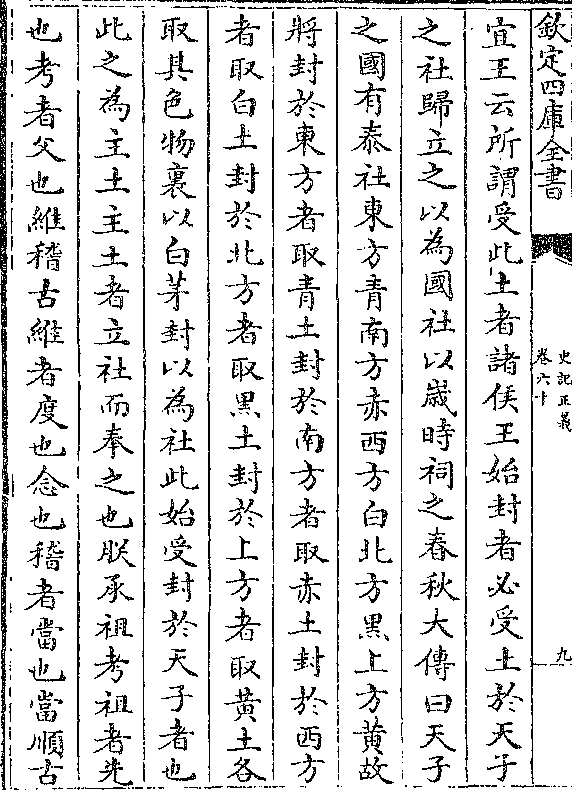 欽定四庫全書
史記正義
卷六十
九
宜王云所謂受此土者諸侯王始封者必受土於天子
之社歸立之以為國社以歲時祠之春秋大傳曰天子
之國有泰社東方青南方赤西方白北方黑上方黃故
將封於東方者取青土封於南方者取赤土封於西方
者取白土封於北方者取黑土封於上方者取黃土各
取其色物裹以白茅封以為社此始受封於天子者也
此之為主土主土者立社而奉之也朕承祖考祖者先
也考者父也維稽古維者度也念也稽者當也當順古